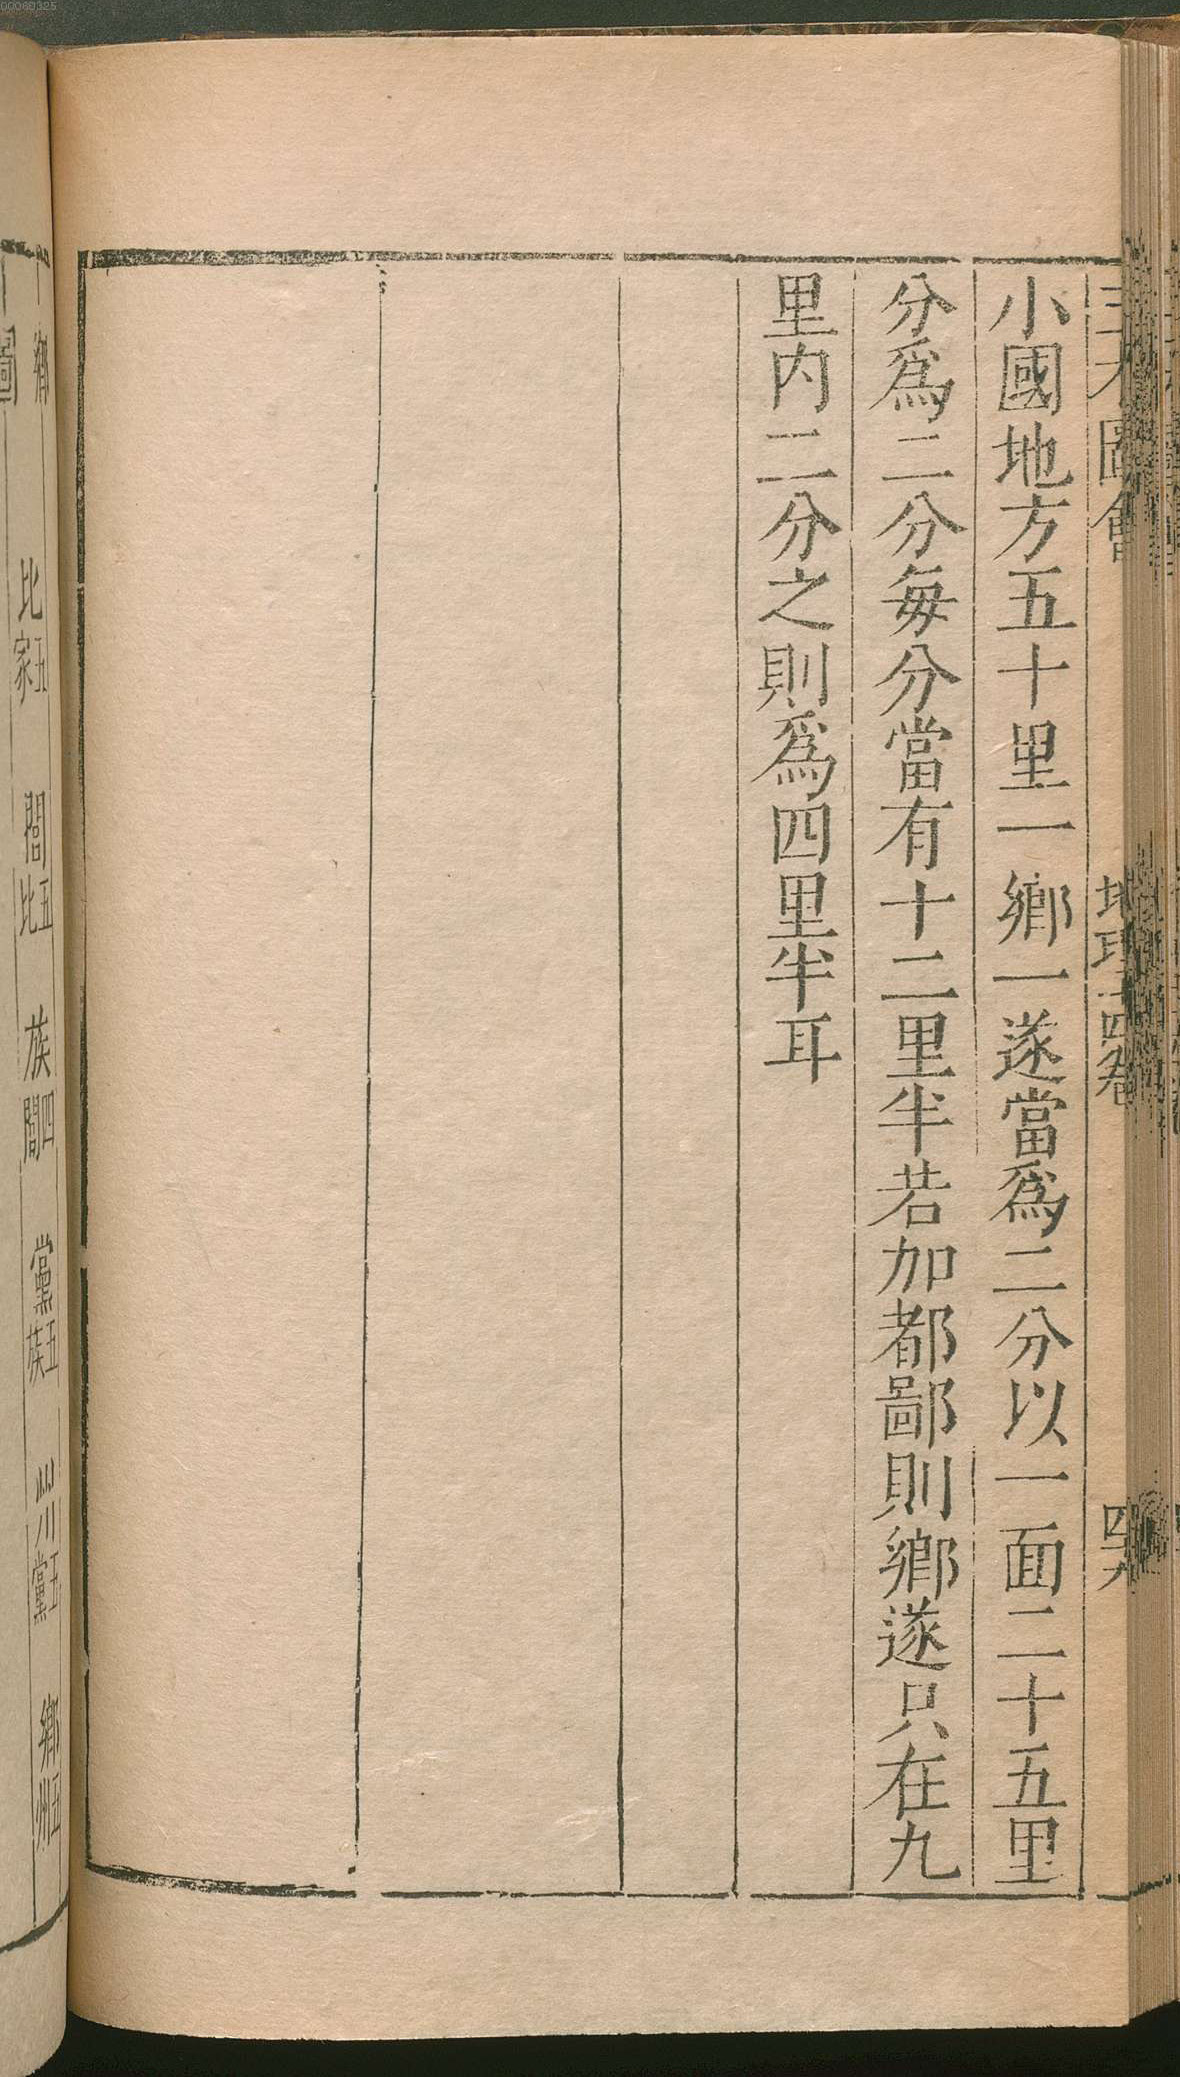 三才圖會
地理十四卷
小國地方五十里一鄉一遂當爲二分以一面二十五里
分爲二分每分當有十二里半若加都鄙則鄉遂只在九
里内二分之則爲四里半耳
鄉
圖
比五家
閭五比
族四閭
黨五族
州五黨
鄉五州
00060325